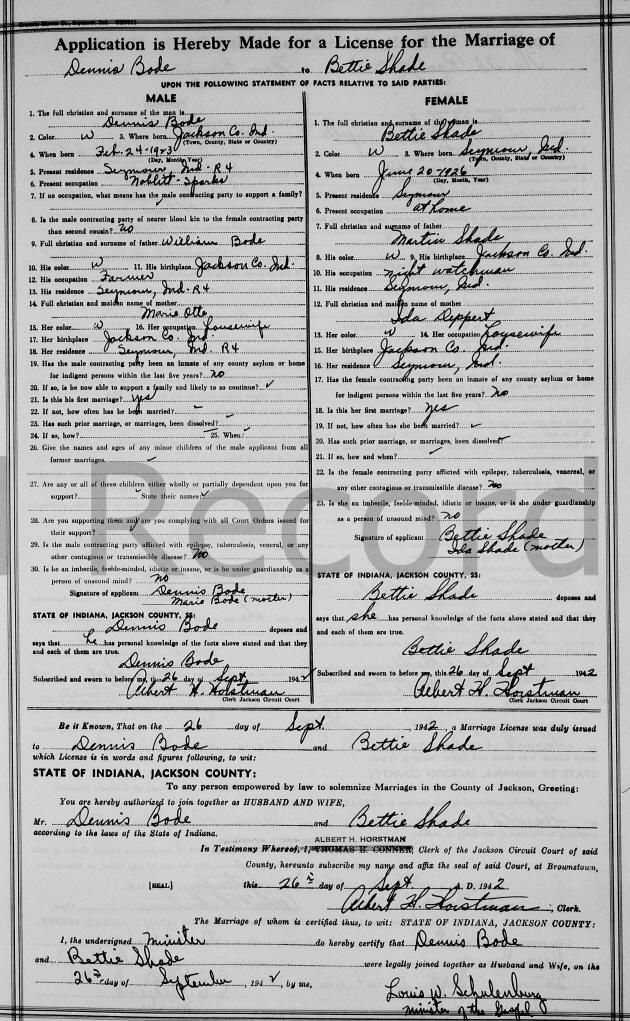 Application is Hereby Made for a License for the Marriage of
Dennis Bode to Bettie Shade
UPON THE FOLLOWING STATEMENT OF FACTS RELATIVE TO SAID PARTIES:
MALE
1. The full christian and surname of the man is
Dennis Bode
2. Color W 3. Where born Jackson Co. Ind.
(Town, County, State or Country)
4. When born Feb. 24-1923
(Day, Month, Year)
5. Present residence Seymour Ind-R4
6. Present occupation Noblitt-Sparks
7. If no occupation, what means has male contracting party to support a family?
8. Is the male contracting party of nearer blood kin to the female contracting party
than second cousin? no
9. Full christian and surname of father William Bode
10. His color W 11. His birthplace Jackson Co. Ind.
12. His occupation Farmer
13. His residence Seymour, Ind-R4
14. Full christian and maiden name of mother
Marie Otte
15. Her color W 16. Her occupation Housewife
17. Her birthplace Jackson Co. Ind.
18. Her residence Seymour, Ind R4
19. Has the male contracting party been an inmate of any county asylum or home
for indigent persons within the last five years? no
20. If so, is he now able to support a family and likely to continue?
21. Is this his first marriage? yes
22. If not, how often has he been married?
23. Has such prior marriage, or marriages, been dissolved?
24. If so, how? 25. When?
26. Give the names and ages of any minor children of the male applicant from all
former marriages.
27. Are any or all of these children either wholly or partially dependent upon you for
support? State their names:
28. Are you supporting them and are you complying with all Court Orders issued for
their support?
29. Is the male contracting party afflicted with epilepsy, tuberculosis, venereal, or any
other contagious or transmissible disease? no
30. Is he an imbecile, feeble-minded, idiotic or insane, or is he under guardianship as a
person of unsound mind? no
Signature of applicant Dennis Bode
Marie Bode (mother)
STATE OF INDIANA, JACKSON COUNTY, SS:
Dennis Bode deposes and
says that he has personal knowledge of the facts above stated and that they
and each of them are true.
Dennis Bode
Subscribed and sworn to before me, this 26 day of Sept 1942
Albert H. Horstman
Clerk Jackson Circuit Court
FEMALE
1. The full christian and surname of the woman is
Bettie Shade
2. Color W 3. Where born Seymour, Ind.
(Town, County, State or Country)
4. When born June 20-1926
(Day, Month, Year)
5. Present residence Seymour
6. Present occupation at home
7. Full christian and surname of father
Martin Shade
8. His color W 9. His birthplace Jackson Co. Ind
10. His occupation night watchman
11. His residence Seymour, Ind.
12. Full christian and maiden name of mother
Ida Deppert
13. Her color W 14. Her occupation Housewife
15. Her birthplace Jackson Co. Ind.
16. Her residence Seymour, Ind.
17. Has the female contracting party been an inmate of any county asylum or home
for indigent persons within the last five years? no
18. Is this her first marriage? yes
19. If not, how often has she been married?
20. Has such prior marriage, or marriages, been dissolved
21. If so, how and when?
22. Is the female contracting party afflicted with epilepsy, tuberculosis, venereal, or
any other contagious or transmissible disease? no
23. Is she an imbecile, feeble-minded, idiotic or insane, or is she under guardianship
as a person of unsound mind? no
Signature of applicant Bettie Shade
Ida Shade (mother)
STATE OF INDIANA, JACKSON COUNTY, SS:
Bettie Shade deposes and
says that she has personal knowledge of the facts above stated and that they
and each of them are true.
Bettie Shade
Subscribed and sworn to before me, this 26 day of Sept 1942
Albert H. Horstman
Clerk Jackson Circuit Court
Record
Be it Known, That on the 26 day of Sept. , 1942, a Marriage License was duly issued
to Dennis Bode and Bettie Shade
which License is in words and figures following, to wit:
STATE OF INDIANA, JACKSON COUNTY:
To any person empowered by law to solemnize Marriages in the County of Jackson, Greeting:
You are hereby authorized to join together as HUSBAND AND WIFE,
Mr. Dennis Bode and Bettie Shade
according to the laws of the State of Indiana.
ALBERT H. HORSTMAN
In Testimony Whereof, I, THOMAS E. CONNER, Clerk of the Jackson Circuit Court of said
County, hereunto subscribe my name and affix the seal of said Court, at Brownstown,
[SEAL] this 26th day of Sept. A. D. 1942
Albert H. Horstman, Clerk.
The Marriage of whom is certified thus, to wit: STATE OF INDIANA, JACKSON COUNTY:
I, the undersigned Minister do hereby certify that Dennis Bode
and Bettie Shade were legally joined together as Husband and Wife, on the
26th day of September, 1942, by me, Louis W. Schulenburg
Minister of the Gospel